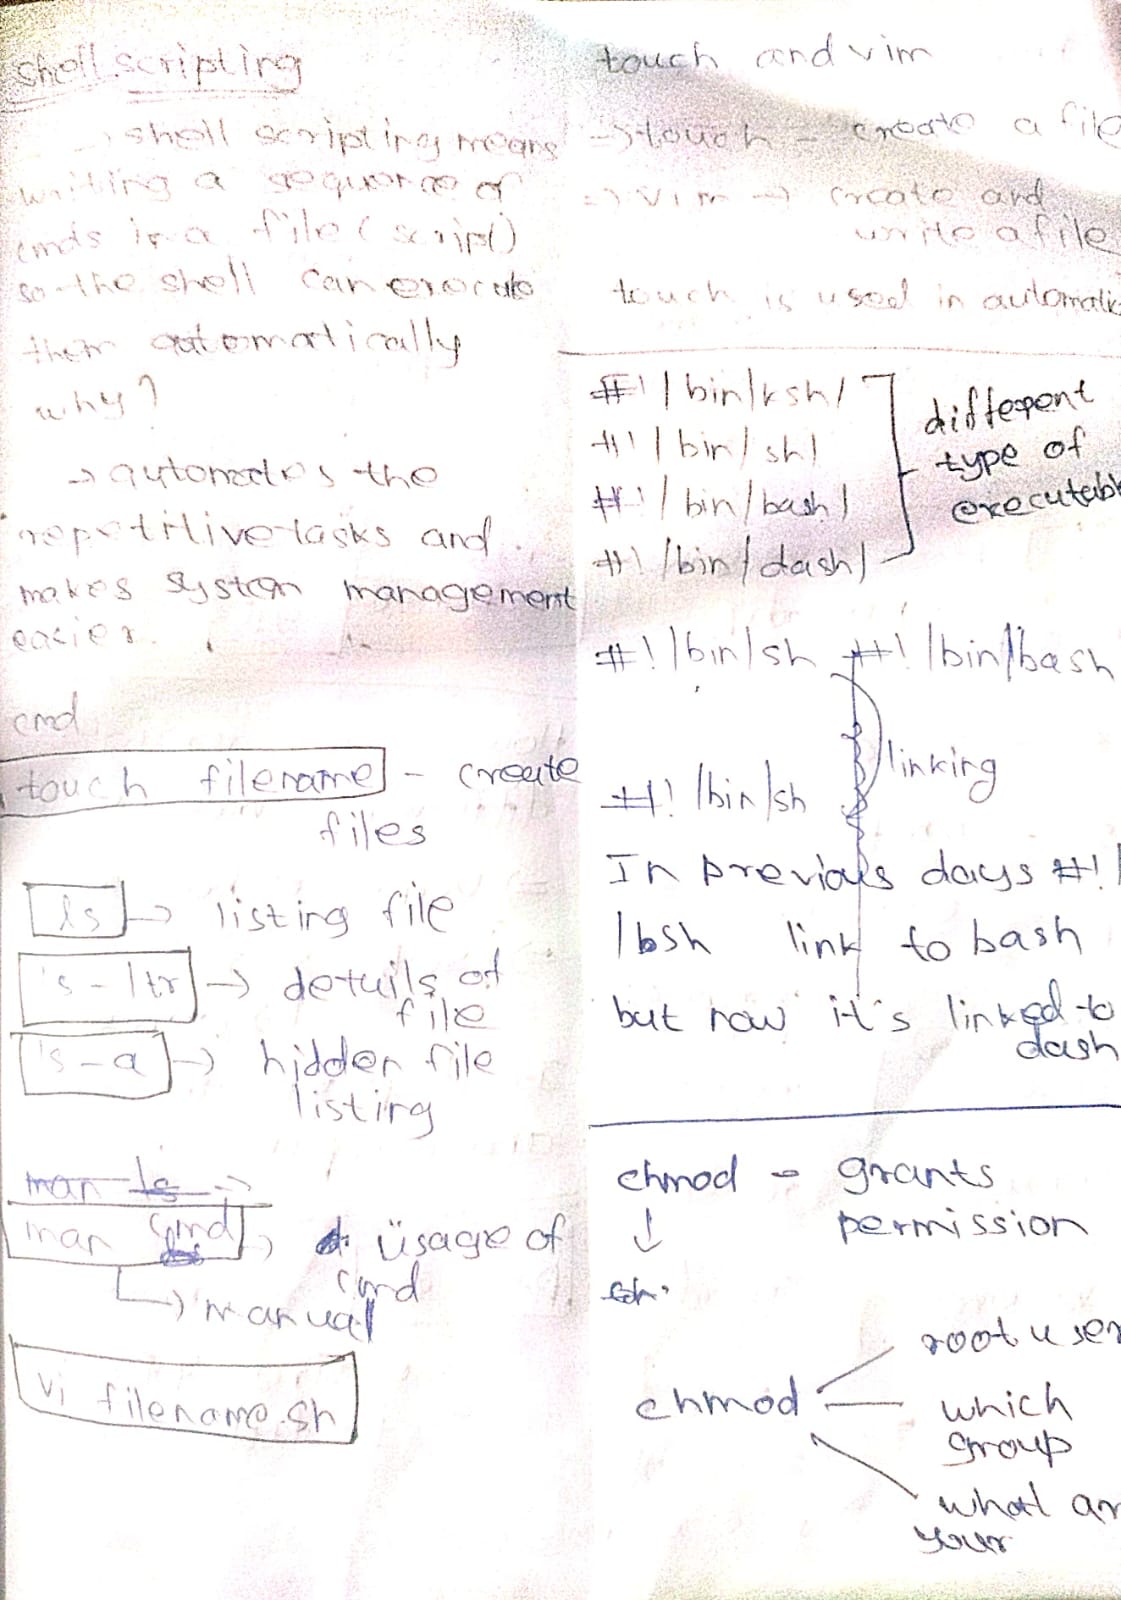 shell scripting
→ shell scripting means
writing a sequence of
cmds in a file (script)
so the shell can execute
them automatically
why?
→ automates the
repetitive tasks and
makes system management
easier.
cmd
touch filename - create
files
ls → listing file
ls - ltr → details of
file
ls - a → hidden file
listing
man ls →
man cmd → usage of
cmd
→ manual
vi filename.sh
touch and vim
→ touch - create a file
→ vim → create and
write a file
touch is used in
#! /bin/ksh/
#! /bin/sh/
#! /bin/bash/
#! /bin/dash/
different
type of
#! /bin/sh #! /bin/bash
linking
#! /bin/sh
In previous days #! /
/bsh link to bash
but now it's linked to
dash
chmod - grants
permission
↓
chmod
root user
which
group
what
your